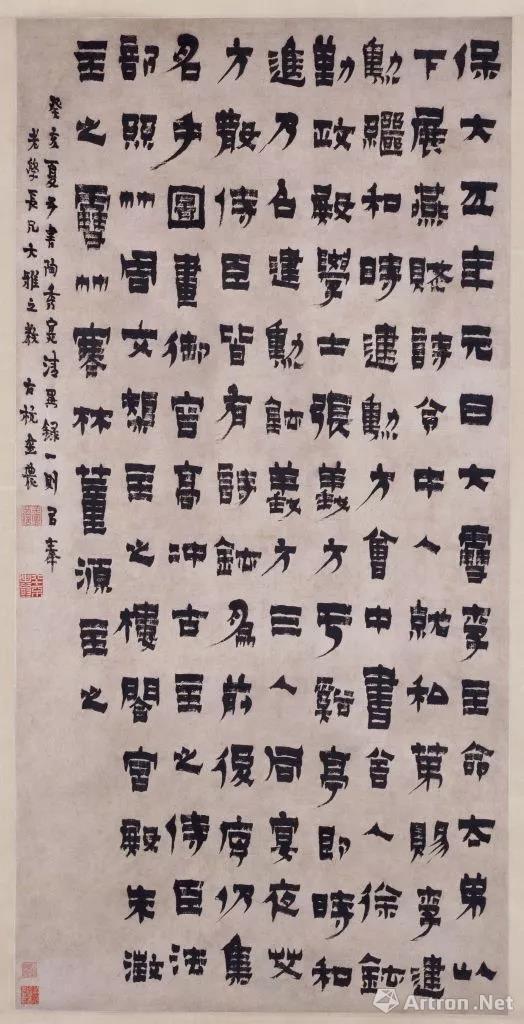 保大五年元日大雪李主命太弟以
下展燕賦詩令中人就和第賜李建
勳繼和時建勳方會中書舍人徐鉉
勤政殿學士張義方于谿亭即時和
進乃召建勳鉉義方三人同宴夜艾
方散侍臣皆有詩鉉為前後序仍集
名手圖畫御容高沖古主之侍臣法
部照竹周文矩主之樓閣宮殿朱澂
主之雪竹寒林董源主之
癸亥夏書陶秀實清異錄一則㠯奉
老學長兄大雅之教 古杭金農
Artron.Net